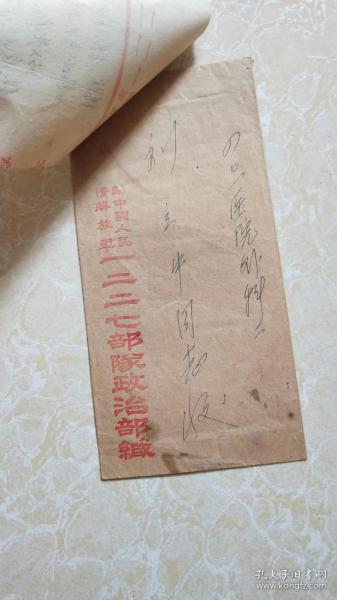 四〇一医院外科二
刘立中同志收
中國人民
解放軍
(青島)
一二二七部隊政治部緘
孔夫子旧书网